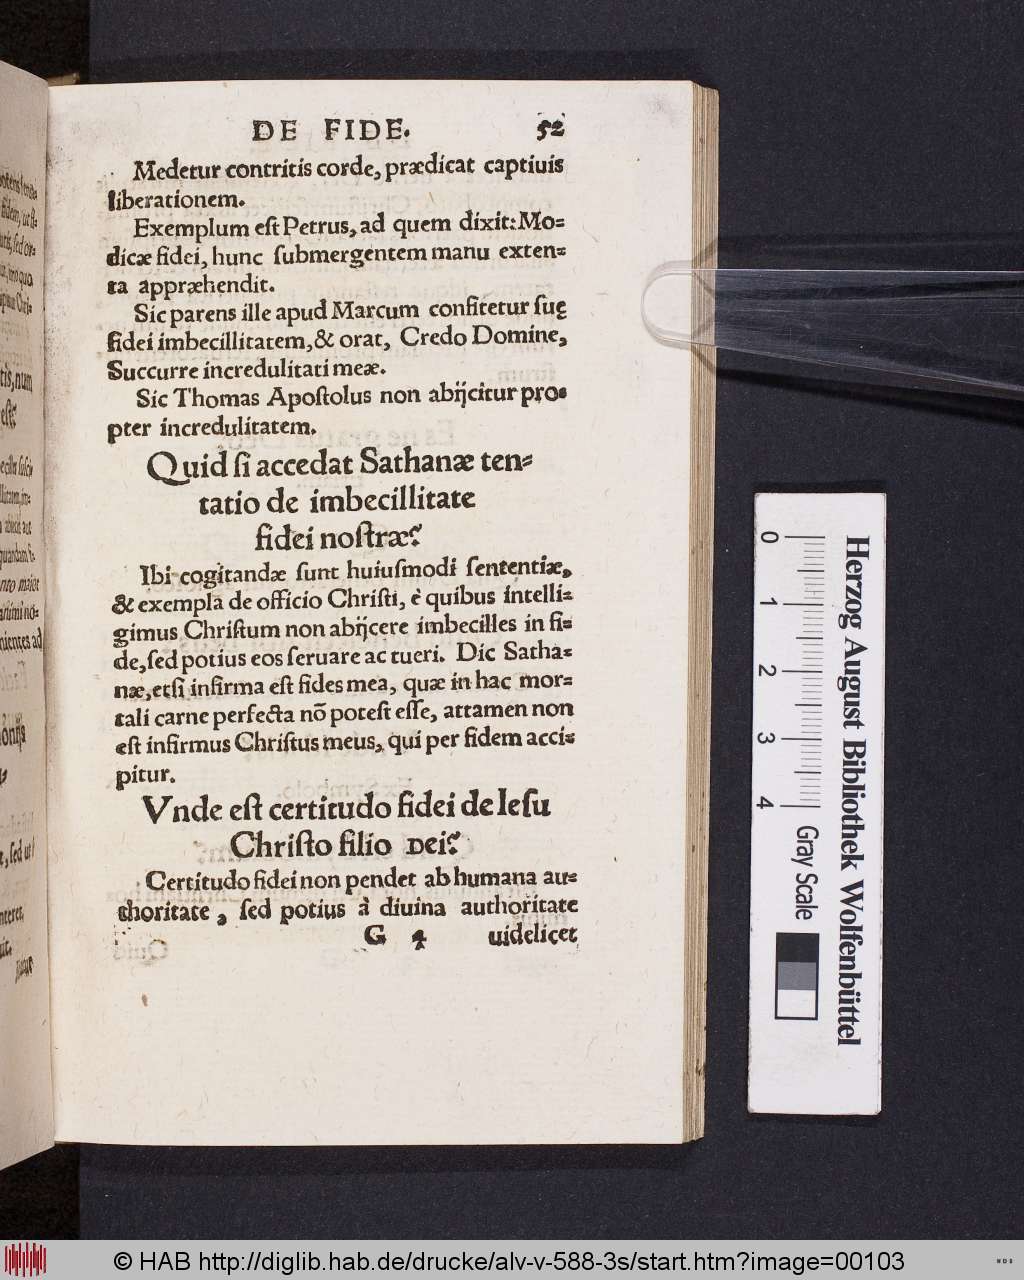 DE FIDE. 52
Medetur contritis corde, prædicat captiuis
liberationem.
Exemplum eſt Petrus, ad quem dixit: Mo=
dicæ fidei, hunc ſubmergentem manu exten=
ta appræhendit.
Sic parens ille apud Marcum confitetur ſuę
fidei imbecillitatem, & orat, Credo Domine,
Succurre incredulitati meæ.
Sic Thomas Apoſtolus non abijcitur pro=
pter incredulitatem.
Quid ſi accedat Sathanæ ten=
tatio de imbecillitate
fidei noſtræ?
Ibi cogitandæ ſunt huiuſmodi ſententiæ,
& exempla de officio Chriſti, è quibus intelli=
gimus Chriſtum non abijcere imbecilles in fi=
de, ſed potius eos ſeruare ac tueri. Dic Satha=
næ, etſi infirma eſt fides mea, quæ in hac mor=
tali carne perfecta nõ poteſt eſſe, attamen non
eſt infirmus Chriſtus meus, qui per fidem acci=
pitur.
Vnde eſt certitudo fidei de Ieſu
Chriſto filio DEi?
Certitudo fidei non pendet ab humana au=
thoritate, ſed potius à diuina authoritate
G 4 uidelicet
0 1 2 3 4
Gray Scale
Herzog August Bibliothek Wolfenbüttel
© HAB http://diglib.hab.de/drucke/alv-v-588-3s/start.htm?image=00103